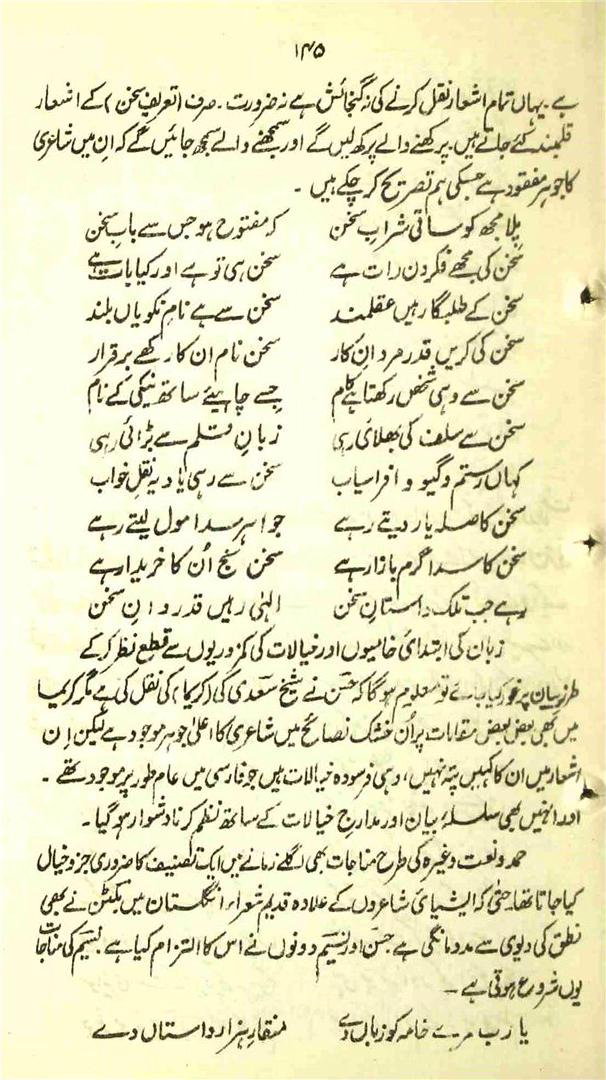 ۱۴۵
ہے ۔ یہاں تمام اشعار نقل کرنے کی نہ گنجائش ہے نہ ضرورت ۔ صرف (تعریفِ سخن) کے اشعار
قلمبند کئے جاتے ہیں ۔ پرکھنے والے پرکھ لیں گے اور سمجھنے والے سمجھ جائیں گے کہ ان میں شاعری
کا جوہر مفقود ہے جسکی ہم تصریح کر چکے ہیں ۔
پلا مجھ کو ساقی شرابِ سخن کہ مفتوح ہو جس سے بابِ سخن
سخن کی مجھے فکر دن رات ہے سخن ہی تو ہے اور کیا بات ہے
سخن کے طلبگار ہیں عقلمند سخن سے ہے نامِ نکویاں بلند
سخن کی کریں قدر مردانِ کار سخن نام ان کا رکھے برقرار
سخن سے وہی شخص رکھتا ہے کام جسے چاہیئے ساتھ نیکی کے نام
سخن سے سلف کی بھلائی رہی زبانِ قلم سے بڑائی رہی
کہاں رستم و گیو و افراسیاب سخن سے رہی یاد یہ نقلِ خواب
سخن کا صلہ یار دیتے رہے جواہر سدا مول لیتے رہے
سخن کا سدا گرم بازار ہے سخن سنج اُن کا خریدار ہے
رہے جب تلک داستانِ سخن الٰہی رہیں قدردانِ سخن
زبان کی ابتدائی خامیوں اور خیالات کی کمزوریوں سے قطع نظر کر کے
طرزِ بیان پر غور کیا جائے تو معلوم ہو گا کہ حسن نے شیخ سعدی کی (کریما) کی نقل کی ہے مگر کریما
میں بھی بعض بعض مقامات پر اُن خشک نصائح میں شاعری کا اعلیٰ جوہر موجود ہے لیکن اِن
اشعار میں ان کا کہیں پتہ نہیں، وہی فرسودہ خیالات ہیں جو فارسی میں عام طور پر موجود تھے ۔
اور انہیں بھی سلسلۂ بیان اور مدارجِ خیالات کے ساتھ نظم کرنا دشوار ہو گیا ۔
حمد و نعت وغیرہ کی طرح مناجات بھی اگلے زمانے میں ایک تصنیف کا ضروری جزو خیال
کیا جاتا تھا۔ حتیٰ کہ ایشیائی شاعروں کے علاوہ قدیم شعراء انگلستان میں ملٹن نے بھی
نطق کی دیوی سے مدد مانگی ہے حسن اور نسیم دونوں نے اس کا التزام کیا ہے ۔ نسیم کی مناجات
یوں شروع ہوتی ہے ۔
یا رب مرے خامہ کو زباں دے منقارِ ہزار داستاں دے